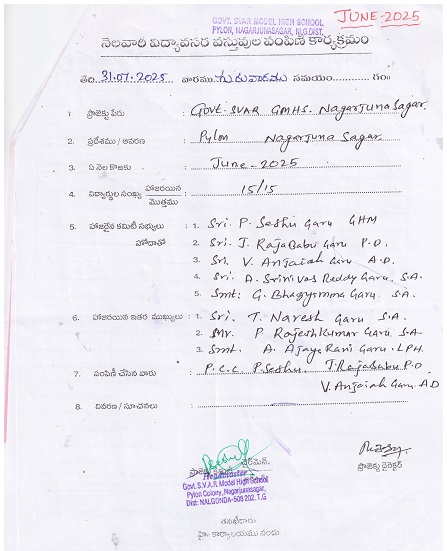 JUNE-2025
GOVT. SVAR MODEL HIGH SCHOOL
PYLON, NAGARJUNASAGAR, NLG.DIST.
నెలవారి విద్యావసర వస్తువుల పంపిణి కార్యక్రమం
తేది 31.07.2025 వారము గురువారము సమయం.............గం॥
1. ప్రాజెక్టు పేరు : Govt. SVAR GMHS. Nagarjuna Sagar.
2. ప్రదేశము / ఆవరణ : Pylon Nagarjuna Sagar.
3. ఏ నెల కొఱకు : June-2025
4. విద్యార్థుల సంఖ్య హాజరయిన / మొత్తము : 15/15
5. హాజరైన కమిటీ సభ్యులు : 1. Sri. P. Seshu Garu GHM
హోదాతో 2. Sri. J. RajaBabu Garu P.D.
3. Sri. V. Anjaiah Garu A.D.
4. Sri. A. Srinivas Reddy Garu. S.A.
5. Smt: G. Bhagyamma Garu. S.A.
6. హాజరయిన ఇతర ముఖ్యులు : 1. Sri. T. Naresh Garu S.A.
2. Mr. P. Rajeshkumar Garu. S.A
3. Smt. A. Ajaya Rani Garu. LPH.
7. పంపిణీ చేసిన వారు : P.C.C P.Seshu. J.RajaBabu P.D
V. Anjaiah Garu. A.D
8. వివరణ / సూచనలు :
ఛైర్మెన్.
Headmaster
Govt. S.V.A.R. Model High School
Pylon Colony, Nagarjunasagar,
Dist: NALGONDA-508 202. T.G
ప్రాజెక్టు డైరెక్టర్
తనఖీదారు
హై. కార్యాలయము నందు